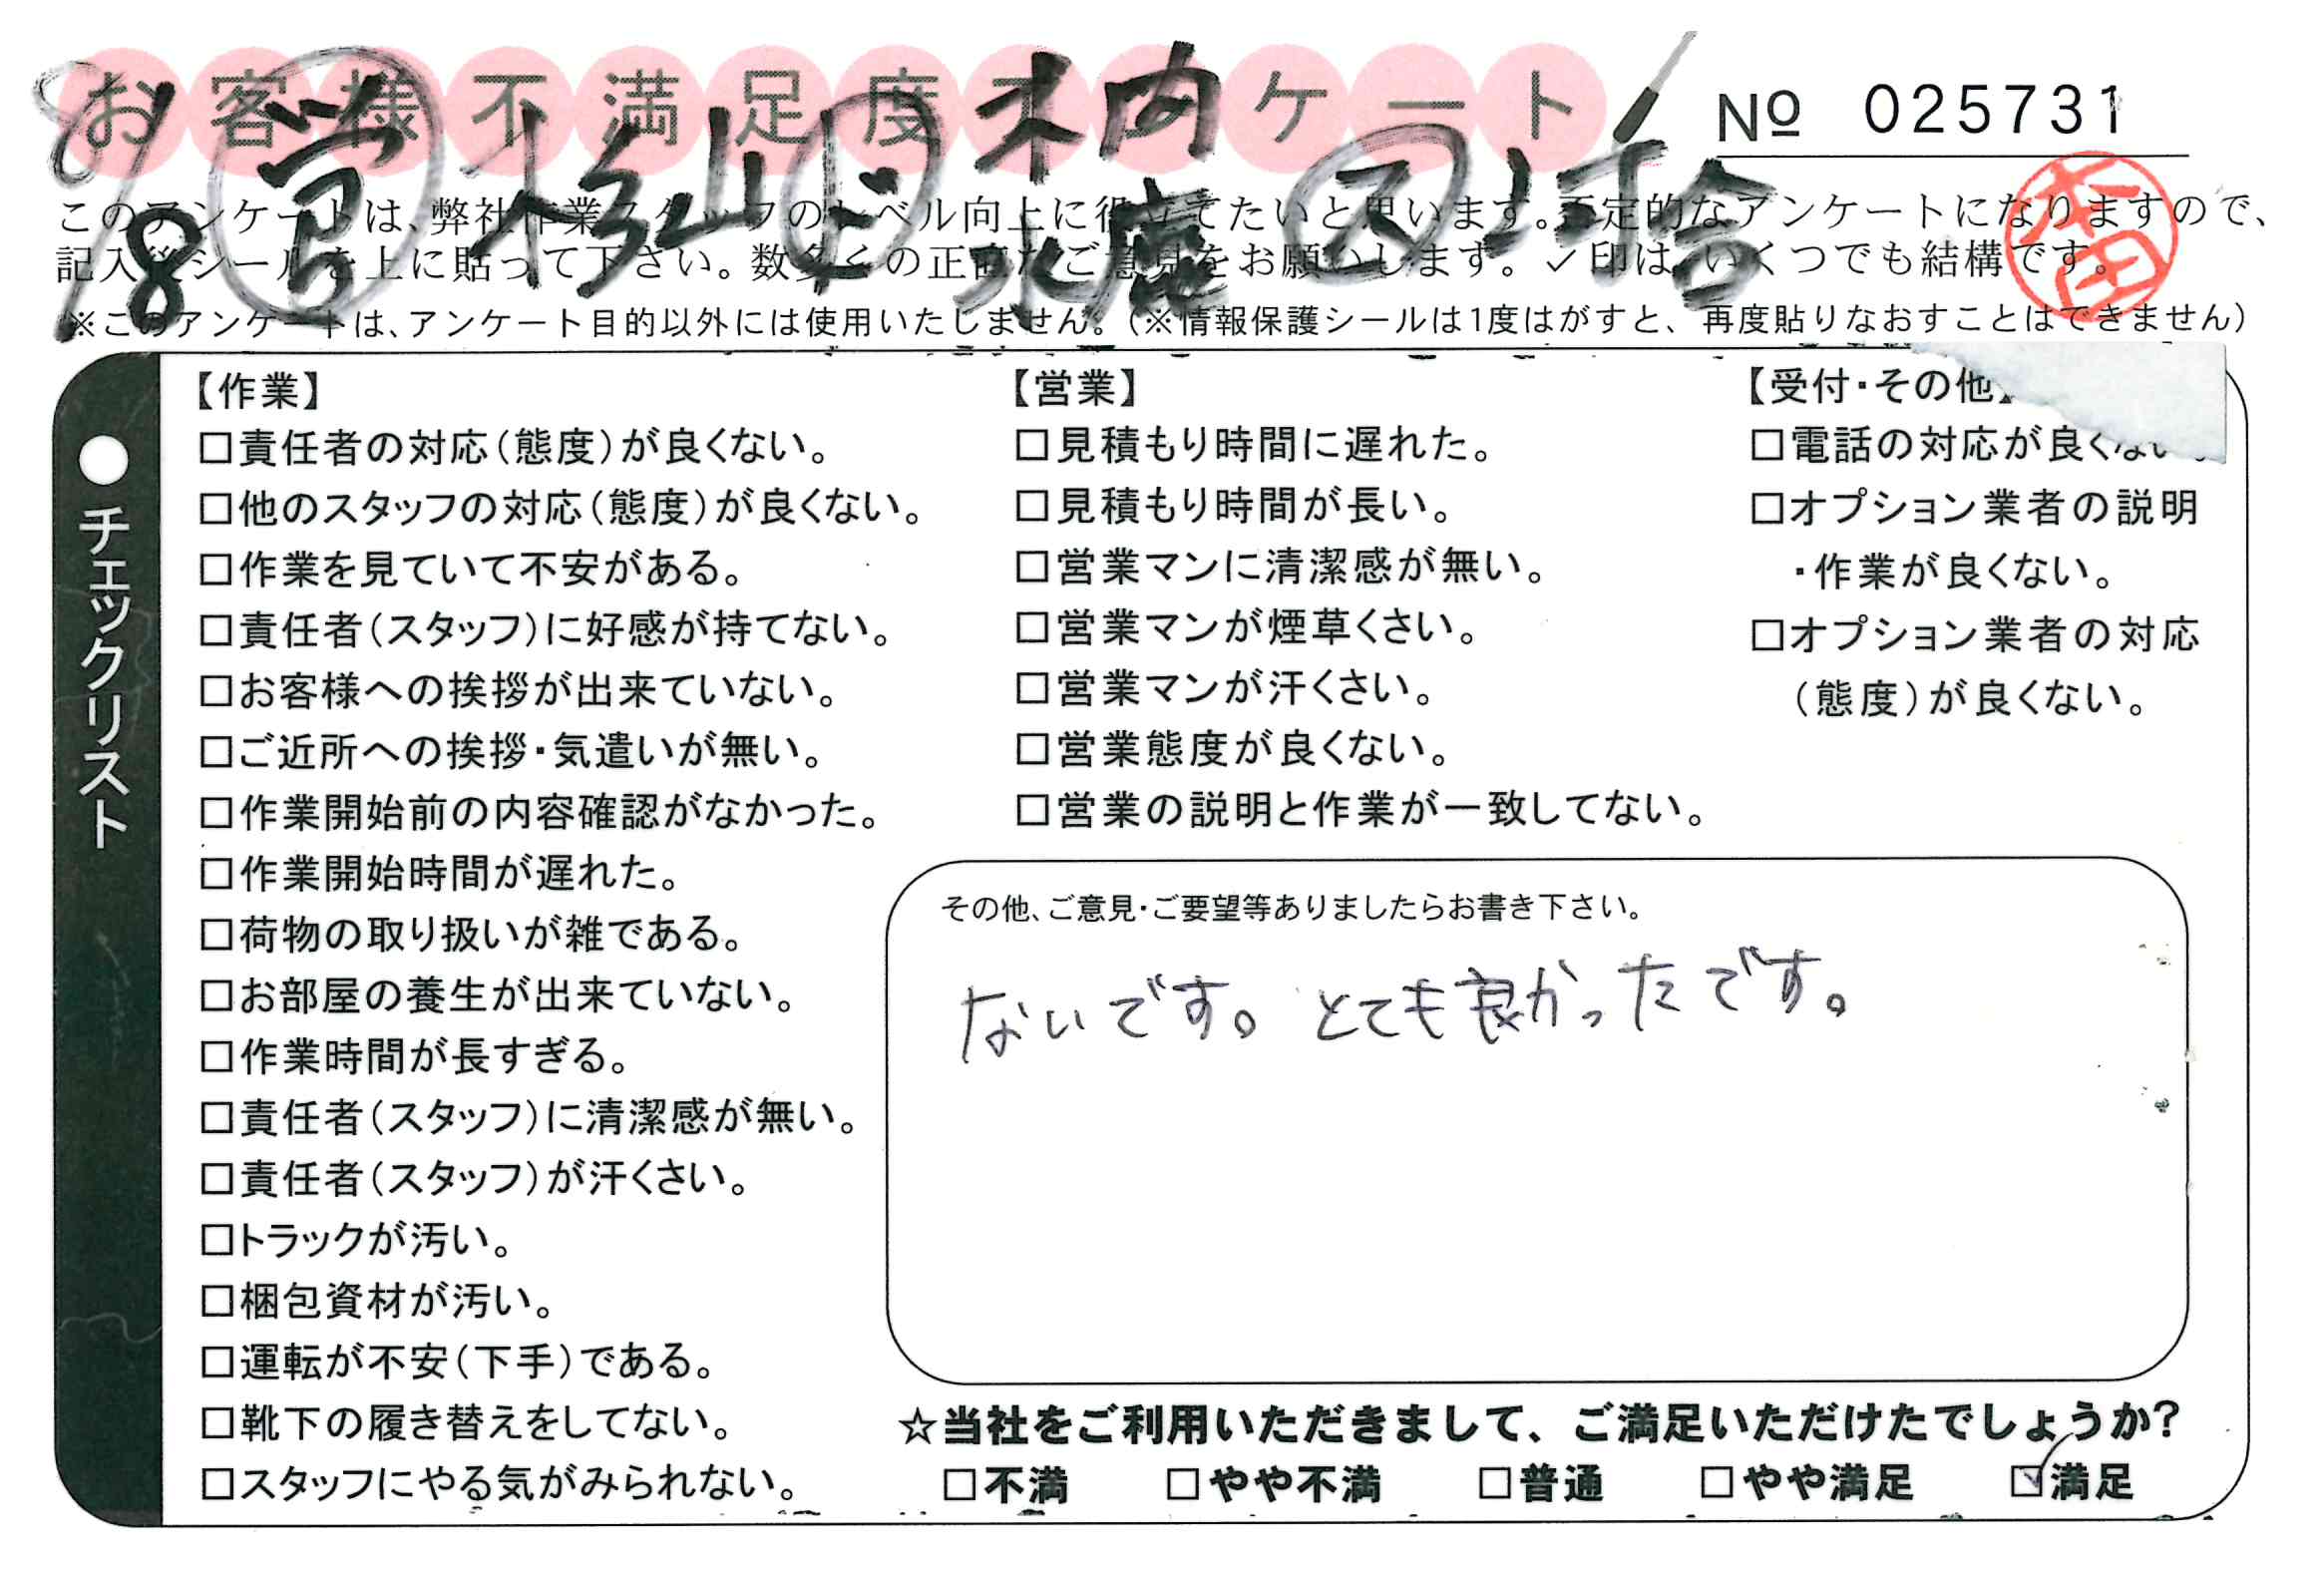 お客様不満足度アンケート
№ 025731
8/18 営 杉山 ト 木内 末廣 ス 河合
このアンケートは、弊社作業スタッフのレベル向上に役立てたいと思います。否定的なアンケートになりますので、
記入後シールを上に貼って下さい。数多くの正直なご意見をお願いします。✓印は、いくつでも結構です。
※このアンケートは、アンケート目的以外には使用いたしません。（※情報保護シールは1度はがすと、再度貼りなおすことはできません）
●チェックリスト
【作業】
□責任者の対応（態度）が良くない。
□他のスタッフの対応（態度）が良くない。
□作業を見ていて不安がある。
□責任者（スタッフ）に好感が持てない。
□お客様への挨拶が出来ていない。
□ご近所への挨拶・気遣いが無い。
□作業開始前の内容確認がなかった。
□作業開始時間が遅れた。
□荷物の取り扱いが雑である。
□お部屋の養生が出来ていない。
□作業時間が長すぎる。
□責任者（スタッフ）に清潔感が無い。
□責任者（スタッフ）が汗くさい。
□トラックが汚い。
□梱包資材が汚い。
□運転が不安（下手）である。
□靴下の履き替えをしてない。
□スタッフにやる気がみられない。
【営業】
□見積もり時間に遅れた。
□見積もり時間が長い。
□営業マンに清潔感が無い。
□営業マンが煙草くさい。
□営業マンが汗くさい。
□営業態度が良くない。
□営業の説明と作業が一致してない。
【受付・その他】
□電話の対応が良くない。
□オプション業者の説明
・作業が良くない。
□オプション業者の対応
（態度）が良くない。
その他、ご意見・ご要望等ありましたらお書き下さい。
ないです。とても良かったです。
☆当社をご利用いただきまして、ご満足いただけたでしょうか？
□不満 □やや不満 □普通 □やや満足 ☑満足